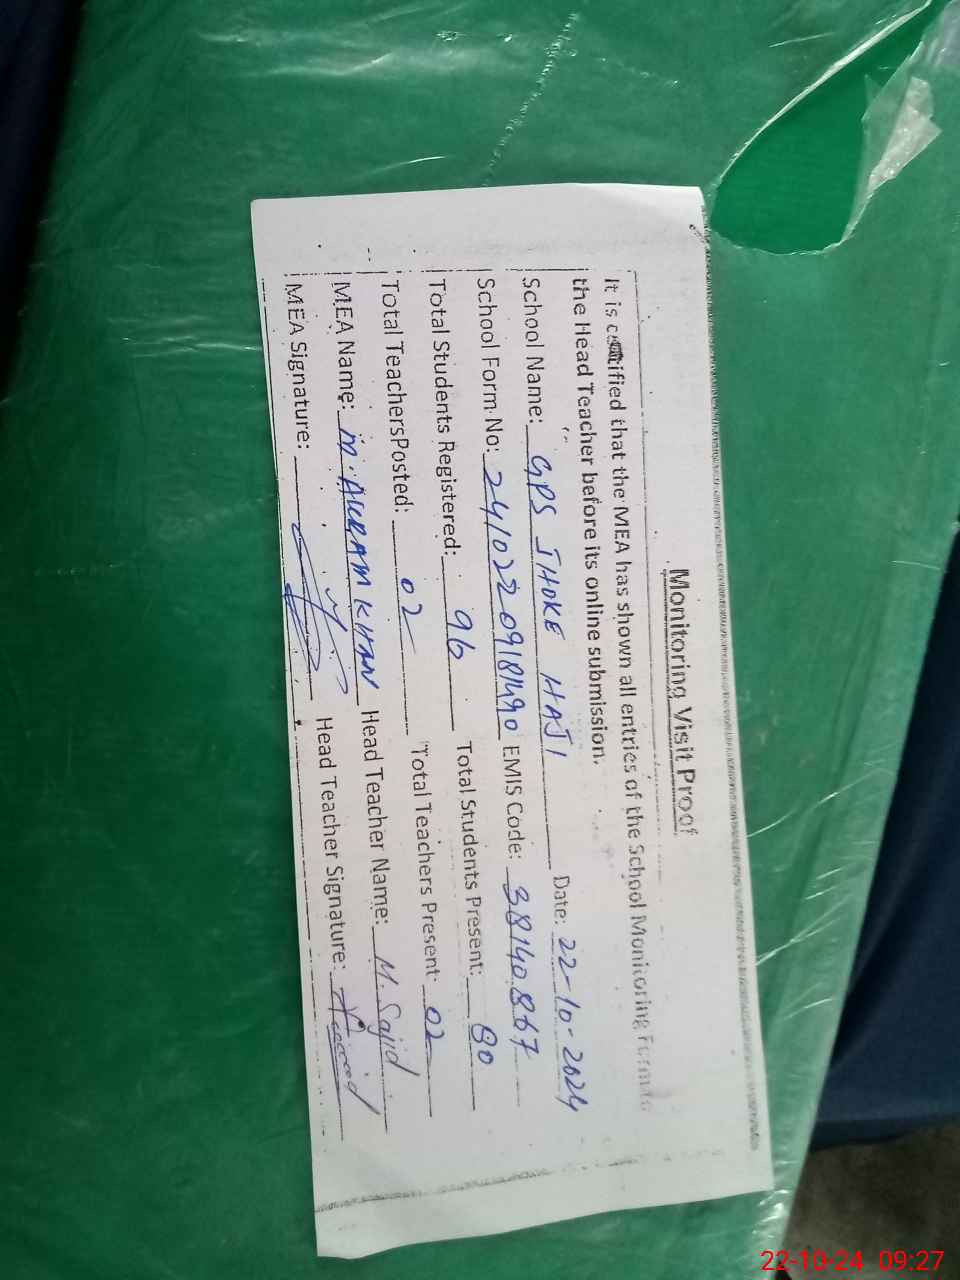 Monitoring Visit Proof
It is certified that the MEA has shown all entries of the School Monitoring Form to
the Head Teacher before its online submission.
School Name: GPS JHOKE HAJI Date: 22-10-2024
School Form No: EMIS Code: 38140867
Total Students Registered: 96 Total Students Present: 80
Total TeachersPosted: 02 Total Teachers Present: 02
MEA Name: M. AKRAM KHAN Head Teacher Name: M. Sajid
MEA Signature: Head Teacher Signature:
22-10-24 09:27